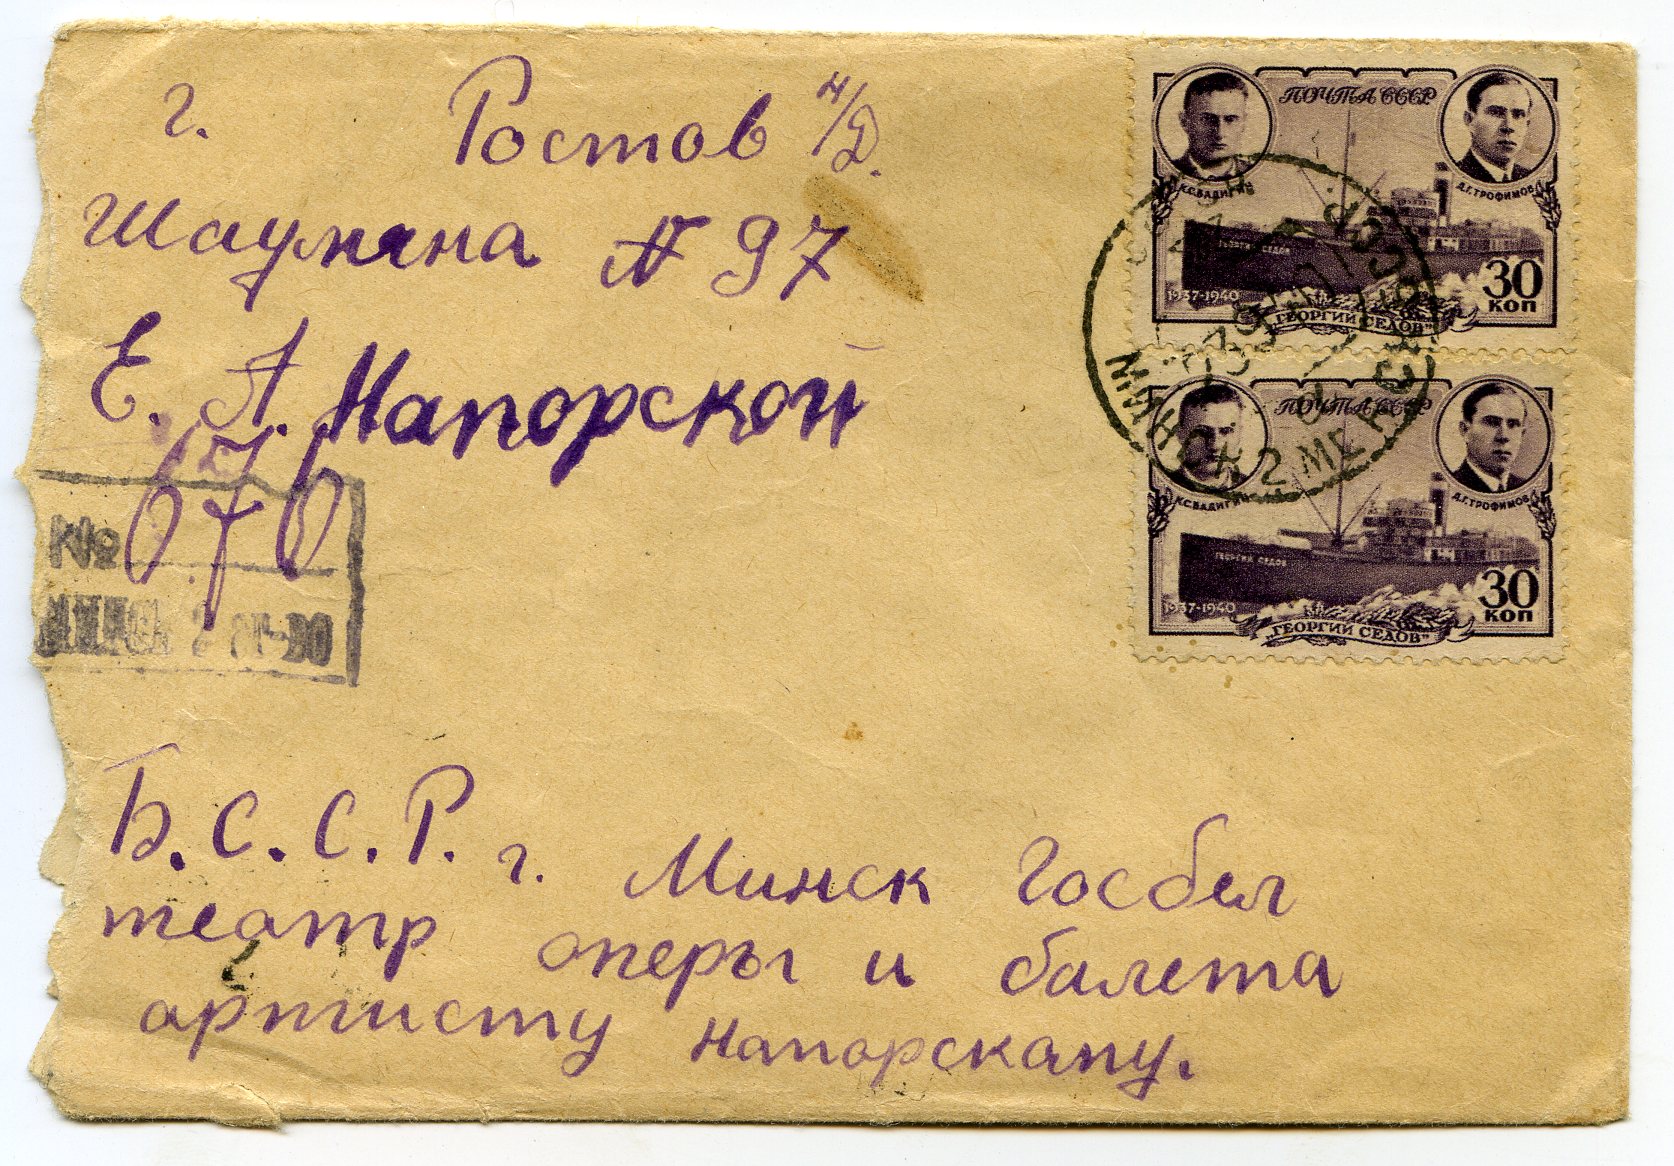 г. Ростов н/Д.
Шаумяна № 97
Е. А. Напорской
№ 676
Б.С.С.Р. г. Минск Госбел
театр оперы и балета
артисту Напорскаму.
ПОЧТА СССР
К.С.БАДИГИН
Д.Г.ТРОФИМОВ
ГЕОРГИЙ СЕДОВ
1937-1940
30
КОП
„ГЕОРГИЙ СЕДОВ"
МИНСК 2 МЕНСК
СССР
ПОЧТА СССР
К.С.БАДИГИН
Д.Г.ТРОФИМОВ
ГЕОРГИЙ СЕДОВ
1937-1940
30
КОП
„ГЕОРГИЙ СЕДОВ"